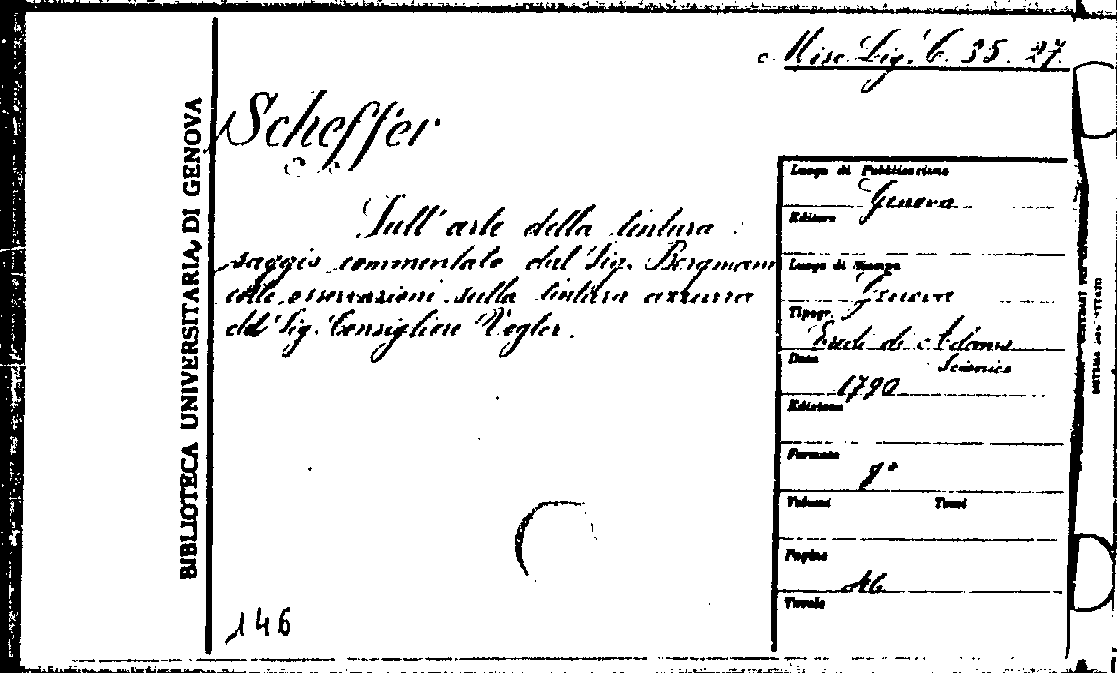 Misc. Lig. C. 35. 27.
BIBLIOTECA UNIVERSITARIA, DI GENOVA
Scheffer
Sull'arte della tintura
saggio commentato dal Sig. Bergmann
colle osservazioni sulla tintura azzurra
del Sig. Consigliere Vogler.
Luogo di Pubblicazione
Genova
Editore
Luogo di Stampa
Genova
Tipogr.
Eredi di Adamo
Scionico
Data
1790
Edizione
Formato
8°
Volumi Tomi
Pagine
Tavole
146